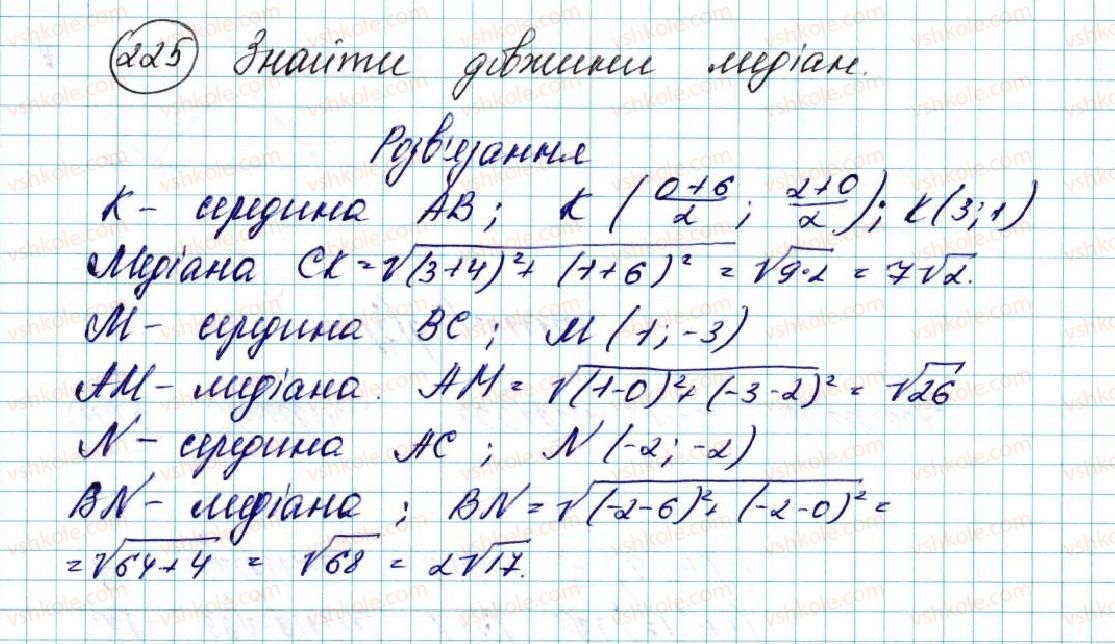 225 Знайти довжини медіан.
Розв'язання
K - середина AB; K (0+6/2; 2+0/2); K(3;1)
Медіана CK = √(3+4)²+(1+6)² = √9·2 = 7√2.
M - середина BC; M (1;-3)
AM - медіана. AM = √(1-0)²+(-3-2)² = √26
N - середина AC; N (-2;-2)
BN - медіана; BN = √(-2-6)²+(-2-0)² =
= √64+4 = √68 = 2√17.